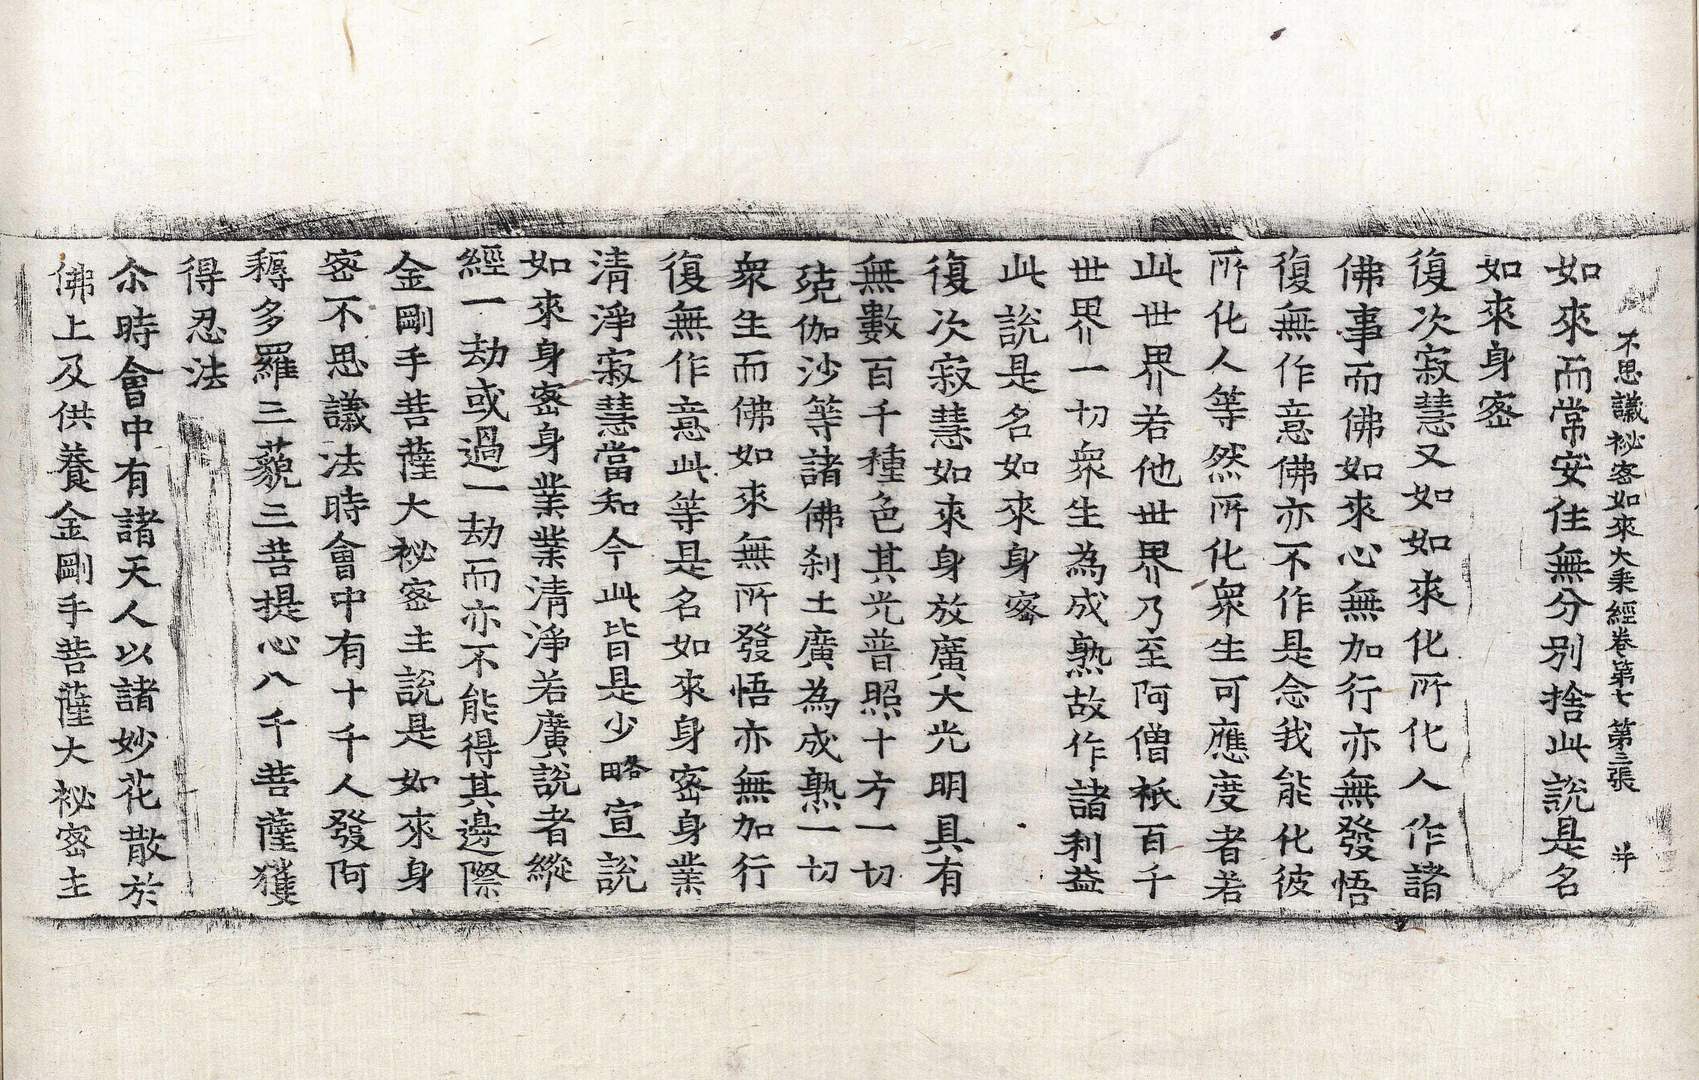 不思議祕密如來大乘經卷第七 第三張 幷
如來而常安住無分別捨此說是名
如來身密
復次寂慧又如如來化所化人作諸
佛事而佛如來心無加行亦無發悟
復無作意佛亦不作是念我能化彼
所化人等然所化衆生可應度者若
此世界若他世界乃至阿僧祇百千
世界一切衆生為成熟故作諸利益
此說是名如來身密
復次寂慧如來身放廣大光明具有
無數百千種色其光普照十方一切
殑伽沙等諸佛刹土廣為成熟一切
衆生而佛如來無所發悟亦無加行
復無作意此等是名如來身密身業
清淨寂慧當知今此皆是少略宣說
如來身密身業業清淨若廣說者縱
經一劫或過一劫而亦不能得其邊際
金剛手菩薩大祕密主說是如來身
密不思議法時會中有十千人發阿
耨多羅三藐三菩提心八千菩薩獲
得忍法
尒時會中有諸天人以諸妙花散於
佛上及供養金剛手菩薩大祕密主